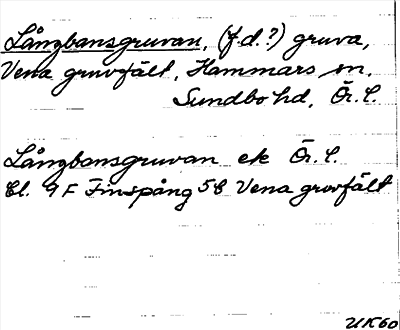 Långbansgruvan, (f.d.?) gruva,
Vena gruvfält, Hammars sn,
Sundbo hd, Ör. l.
Långbansgruvan ek Ör. l.
Bl. 9F Finspång 5b Vena gruvfält
UK60